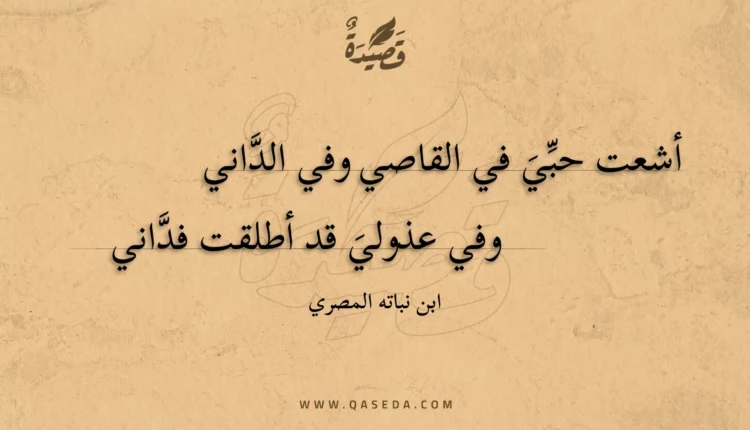 قَصِيدَةٌ
أشعت حبِّيَ في القاصي وفي الدَّاني
وفي عذوليَ قد أطلقت فدَّاني
ابن نباته المصري
WWW.QASEDA.COM